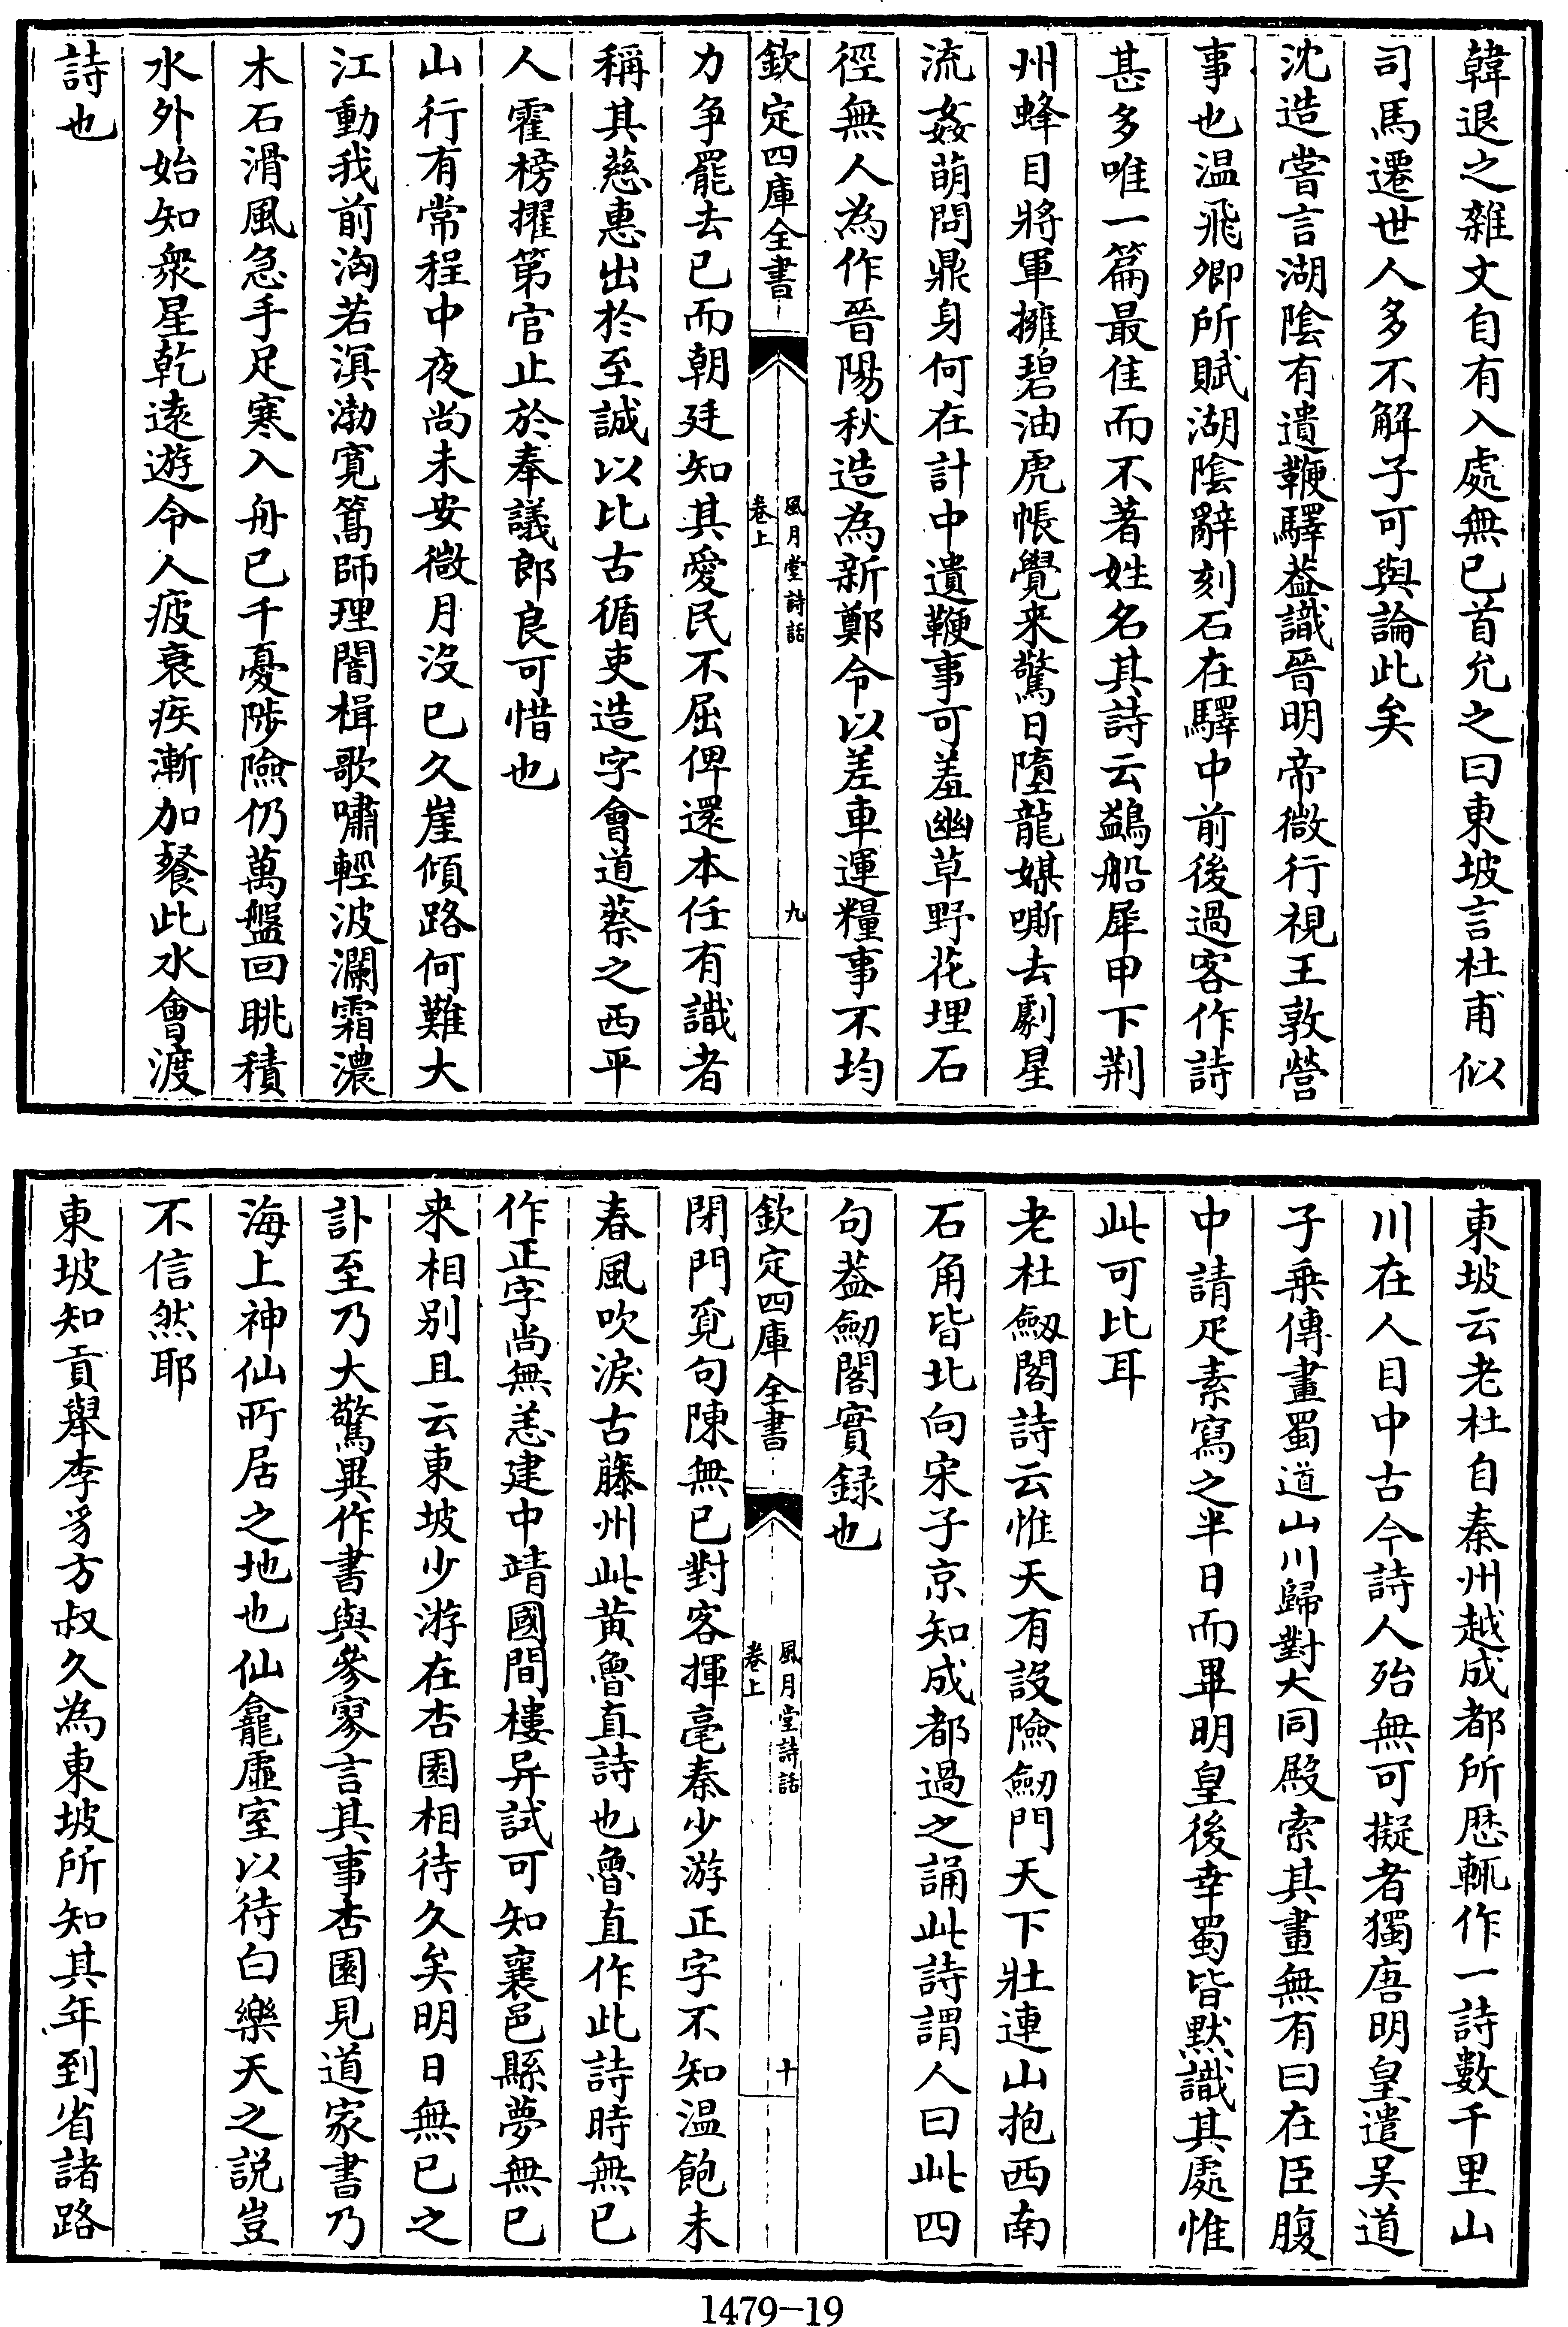 韓退之雜文自有入處無已首允之曰東坡言杜甫似
司馬遷世人多不解子可與論此矣
沈造嘗言湖隂有遺鞭驛葢識晉明帝微行視王敦營
事也温飛卿所賦湖隂辭刻石在驛中前後過客作詩
甚多唯一篇最佳而不著姓名其詩云鷁船犀甲下荆
州蜂目將軍擁碧油虎帳覺来驚日墮龍媒嘶去劇星
流姦萌問鼎身何在計中遺鞭事可羞幽草野花埋石
徑無人為作晉陽秋造為新鄭令以差車運糧事不均
欽定四庫全書
風月堂詩話
卷上
九
力争罷去已而朝廷知其愛民不屈俾還本任有識者
稱其慈惠出於至誠以比古循吏造字會道蔡之西平
人霍榜擢第官止於奉議郎良可惜也
山行有常程中夜尚未安微月没已久崖傾路何難大
江動我前洶若溟渤寛篙師理闇楫歌嘯輕波瀾霜濃
木石滑風急手足寒入舟已千憂陟險仍萬盤回眺積
水外始知衆星乾逺遊令人疲衰疾漸加餐此水會渡
詩也
東坡云老杜自秦州越成都所歴輒作一詩數千里山
川在人目中古今詩人殆無可擬者獨唐明皇遣吴道
子乗傳畫蜀道山川歸對大同殿索其畫無有曰在臣腹
中請疋素寫之半日而畢明皇後幸蜀皆黙識其處惟
此可比耳
老杜劒閣詩云惟天有設險劒門天下壯連山抱西南
石角皆北向宋子京知成都過之誦此詩謂人曰此四
句葢劒閣實録也
欽定四庫全書
風月堂詩話
卷上
十
閉門覓句陳無已對客揮毫秦少游正字不知温飽未
春風吹淚古藤州此黄魯直詩也魯直作此詩時無已
作正字尚無恙建中靖國間樓异試可知襄邑縣夢無已
来相别且云東坡少游在杏園相待久矣明日無已之
訃至乃大驚異作書與參寥言其事杏園見道家書乃
海上神仙所居之地也仙龕虚室以待白樂天之説豈
不信然耶
東坡知貢舉李豸方叔久為東坡所知其年到省諸路
1479-19